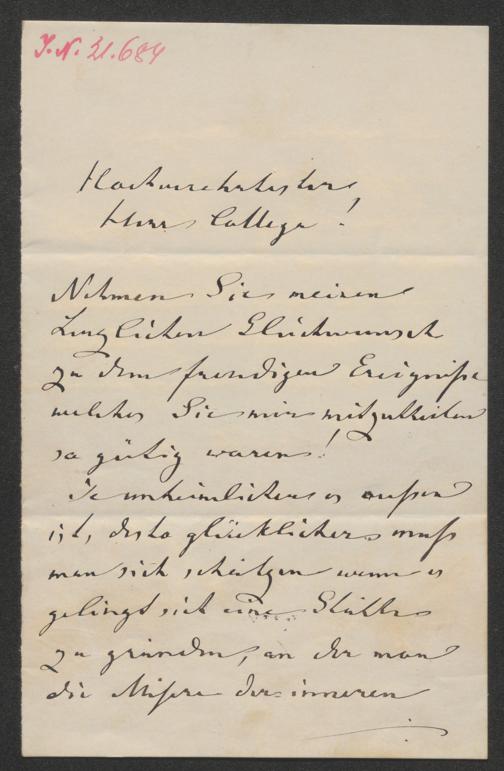 J. N. 21.684
Hochverehrtester
Herr College!
Nehmen Sie meinen
herzlichen Glückwunsch
zu dem freudigen Ereigniße
welches Sie mir mitzutheilen
so gütig waren!
Je unheimlicher es außen
ist, desto glücklicher muß
man sich schätzen wenn es
gelingt sich eine Stätte
zu gründen, an der man
die Misere der inneren